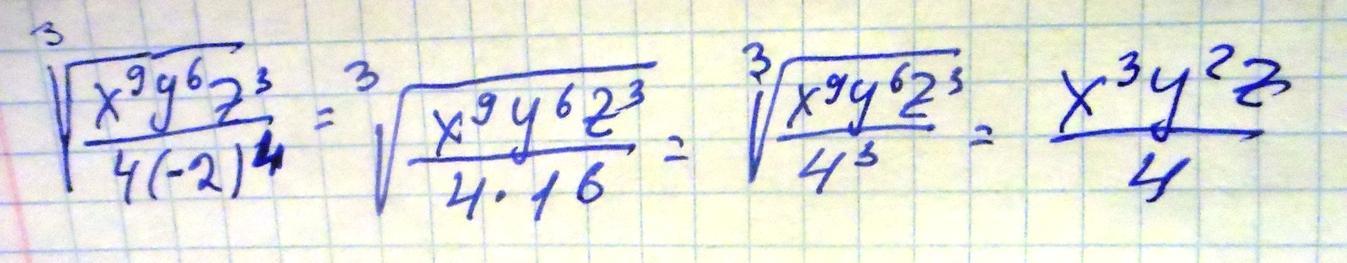 ∛(x⁹y⁶z³ / 4(-2)⁴) = ∛(x⁹y⁶z³ / 4·16) = ∛(x⁹y⁶z³ / 4³) = x³y²z / 4